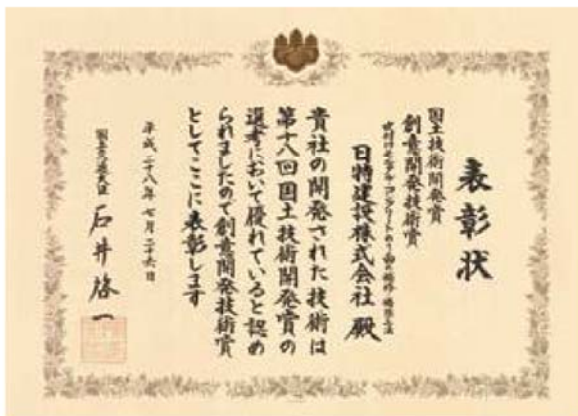 表彰状
国土技術開発賞
創意開発技術賞
吹付けモルタル・コンクリートのり面の補修・補強工法
日特建設株式会社 殿
貴社の開発された技術は
第十八回国土技術開発賞の
選考において優れていると認め
られましたので創意開発技術賞
としてここに表彰します
平成二十八年七月二十六日
国土交通大臣 石井啓一